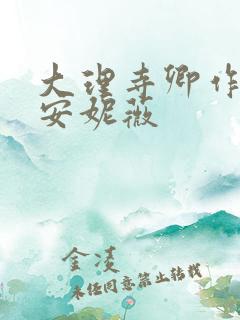 大理寺卿作
安妮薇
金凌
未经同意禁止转载